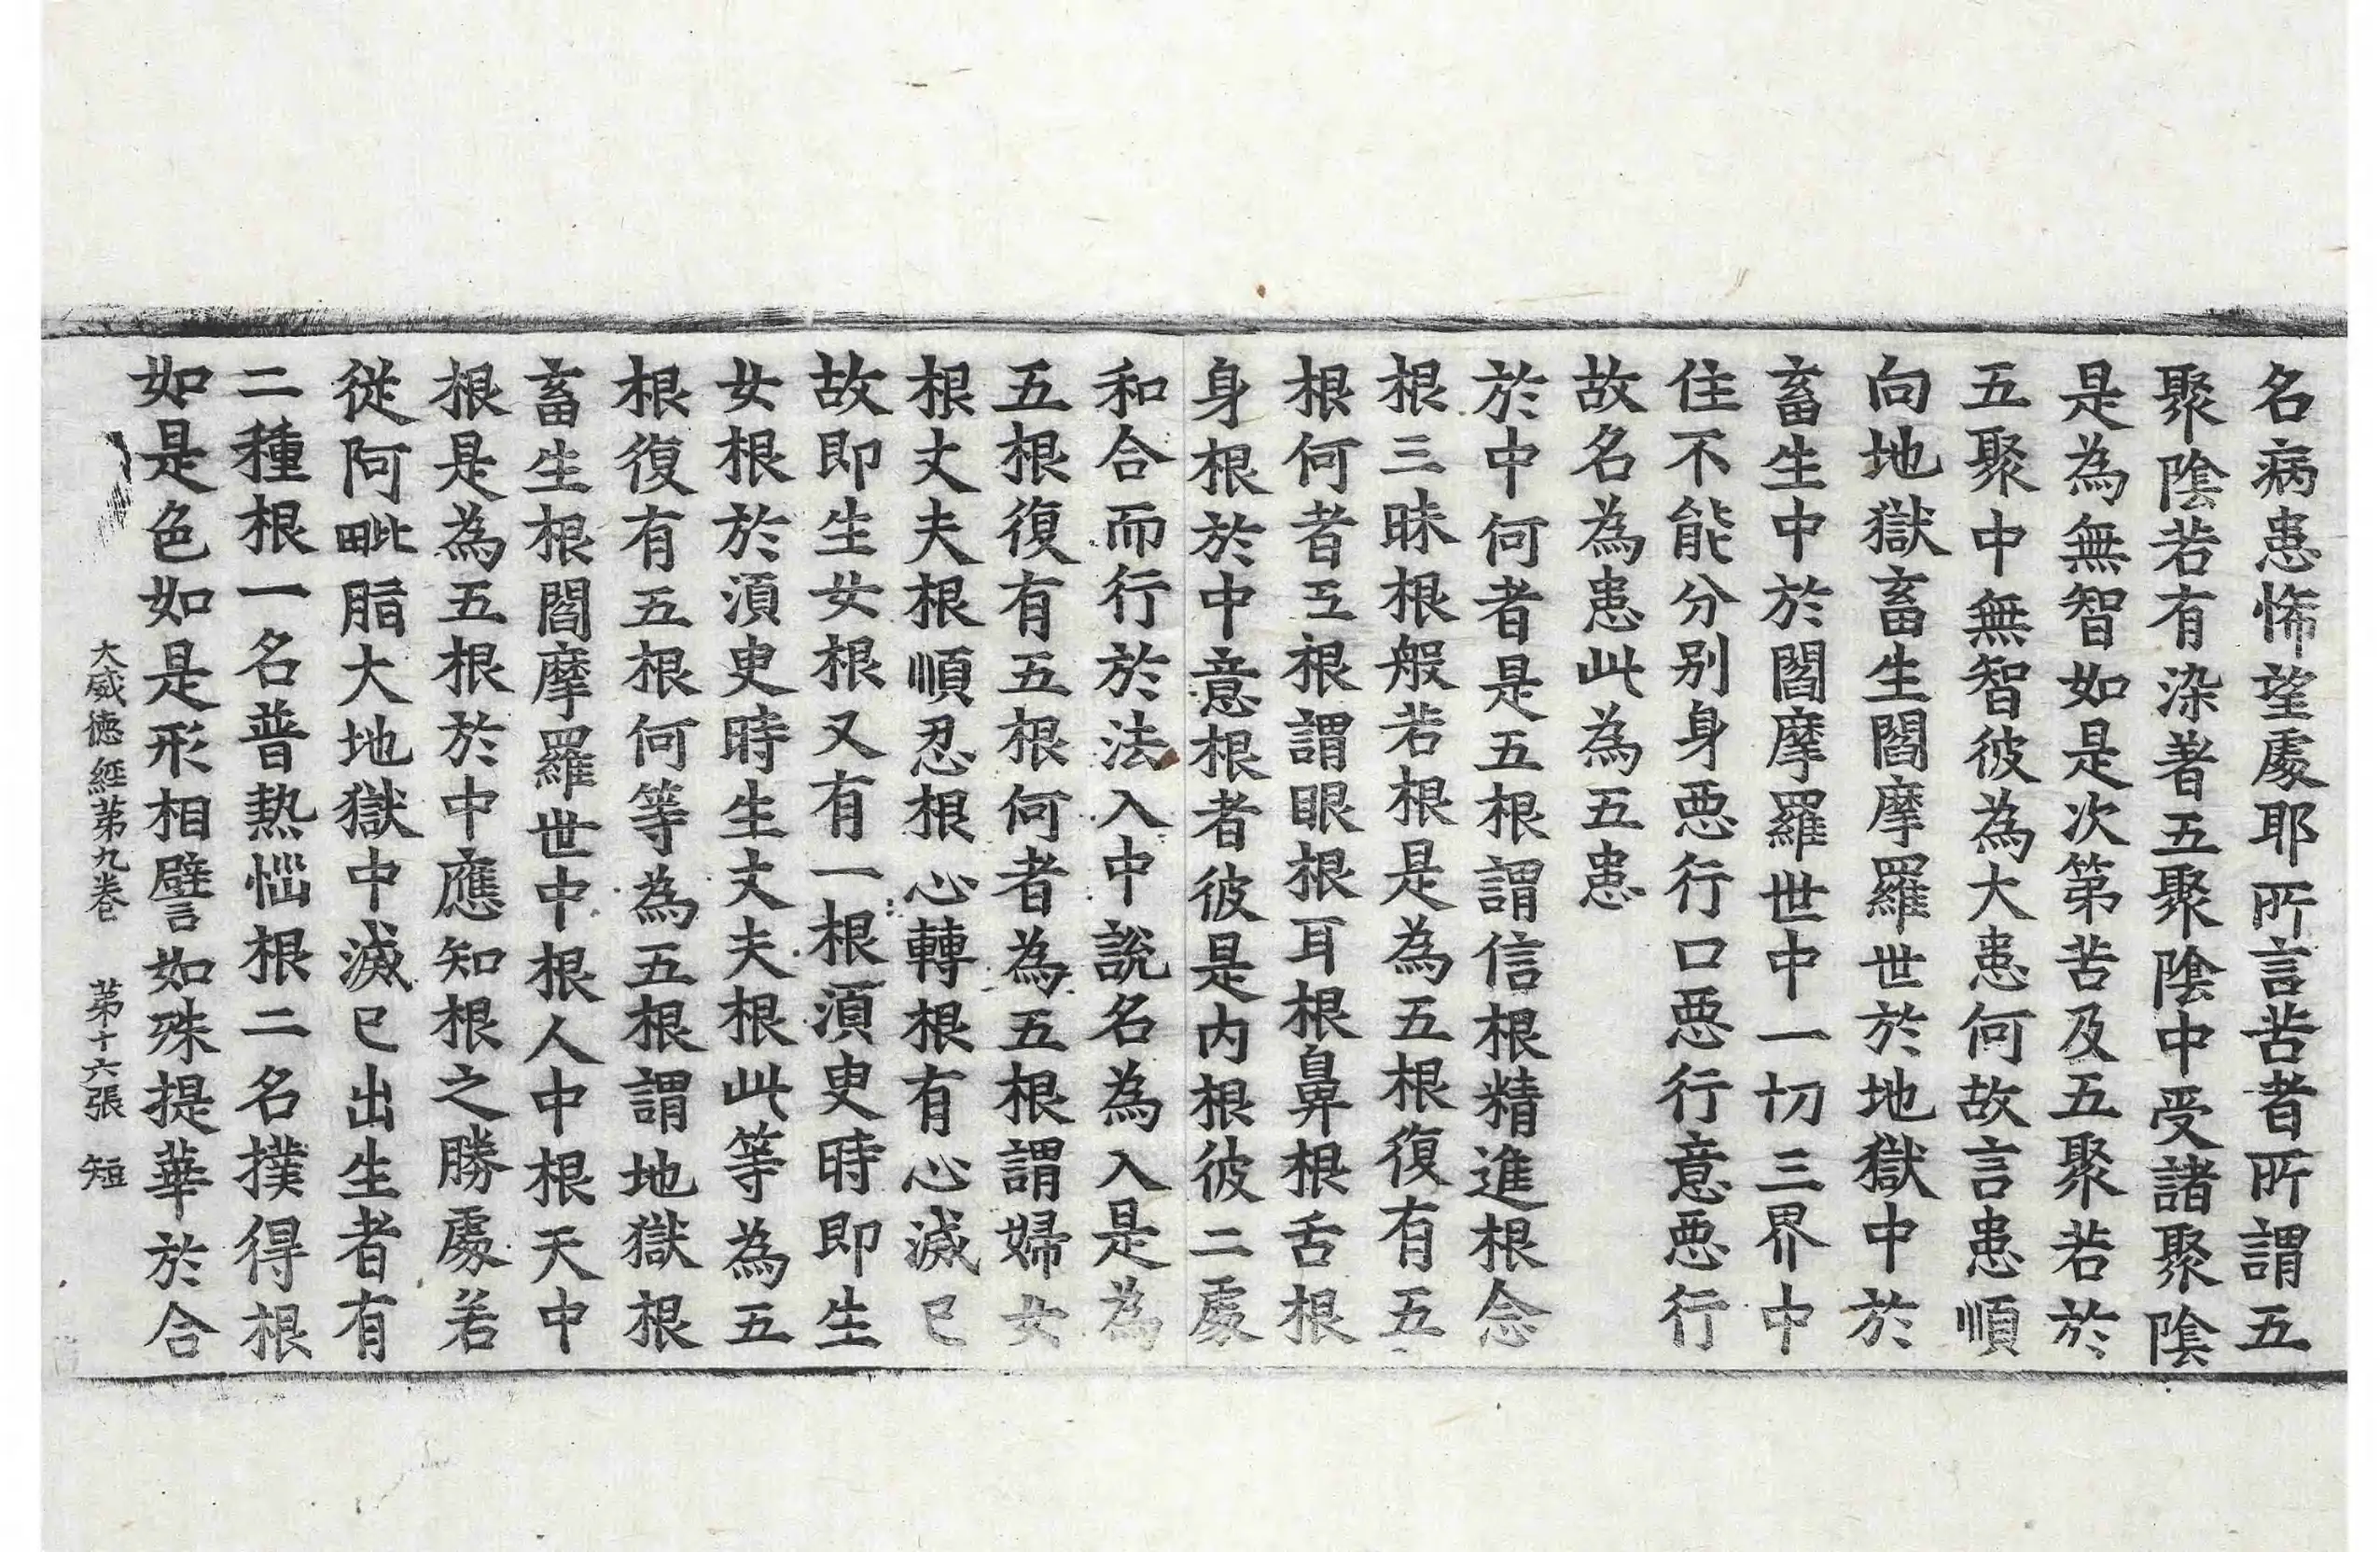 名病患悕望處耶所言苦者所謂五
聚陰若有染著五聚陰中受諸聚陰
是為無智如是次第苦及五聚若於
五聚中無智彼為大患何故言患順
向地獄畜生閻摩羅世於地獄中於
畜生中於閻摩羅世中一切三界中
住不能分别身惡行口惡行意惡行
故名為患此為五患
於中何者是五根謂信根精進根念
根三昧根般若根是為五根復有五
根何者五根謂眼根耳根鼻根舌根
身根於中意根者彼是内根彼二處
和合而行於法入中說名為入是為
五根復有五根何者為五根謂婦女
根丈夫根順忍根心轉根有心滅已
故即生女根又有一根須臾時即生
女根於須臾時生丈夫根此等為五
根復有五根何等為五根謂地獄根
畜生根閻摩羅世中根人中根天中
根是為五根於中應知根之勝處若
從阿毗脂大地獄中滅已出生者有
二種根一名普熱惱根二名撲得根
如是色如是形相譬如殊提華於合
大威德經第九卷 第十六張 短